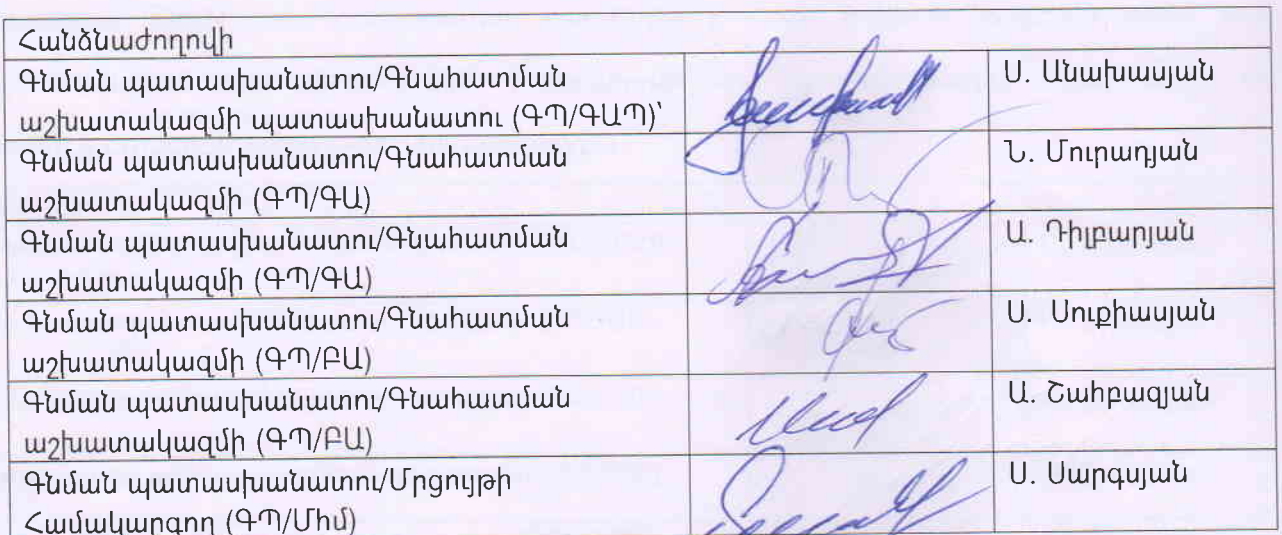 Հանձնաժողովի
Գնման պատասխանատու/Գնահատման
աշխատակազմի պատասխանատու (ԳՊ/ԳԱՊ)՝
Ս. Անախասյան
Գնման պատասխանատու/Գնահատման
աշխատակազմի (ԳՊ/ԳԱ)
Ն. Մուրադյան
Գնման պատասխանատու/Գնահատման
աշխատակազմի (ԳՊ/ԳԱ)
Ա. Դիլբարյան
Գնման պատասխանատու/Գնահատման
աշխատակազմի (ԳՊ/ԲԱ)
Ս. Սուքիասյան
Գնման պատասխանատու/Գնահատման
աշխատակազմի (ԳՊ/ԲԱ)
Ա. Շահբազյան
Գնման պատասխանատու/Մրցույթի
Համակարգող (ԳՊ/Մհմ)
Ս. Սարգսյան